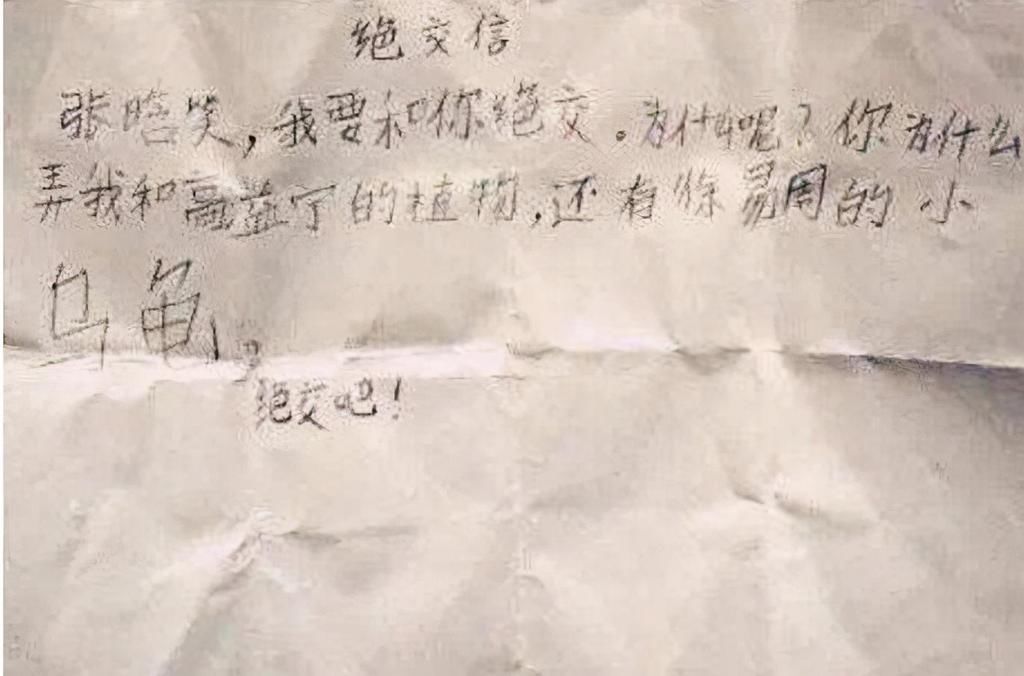 绝交信
张晗笑,我要和你绝交。为什呢?你为什么
弄我和高益宁的植物,还有徐易周的小
乌龟?
绝交吧!